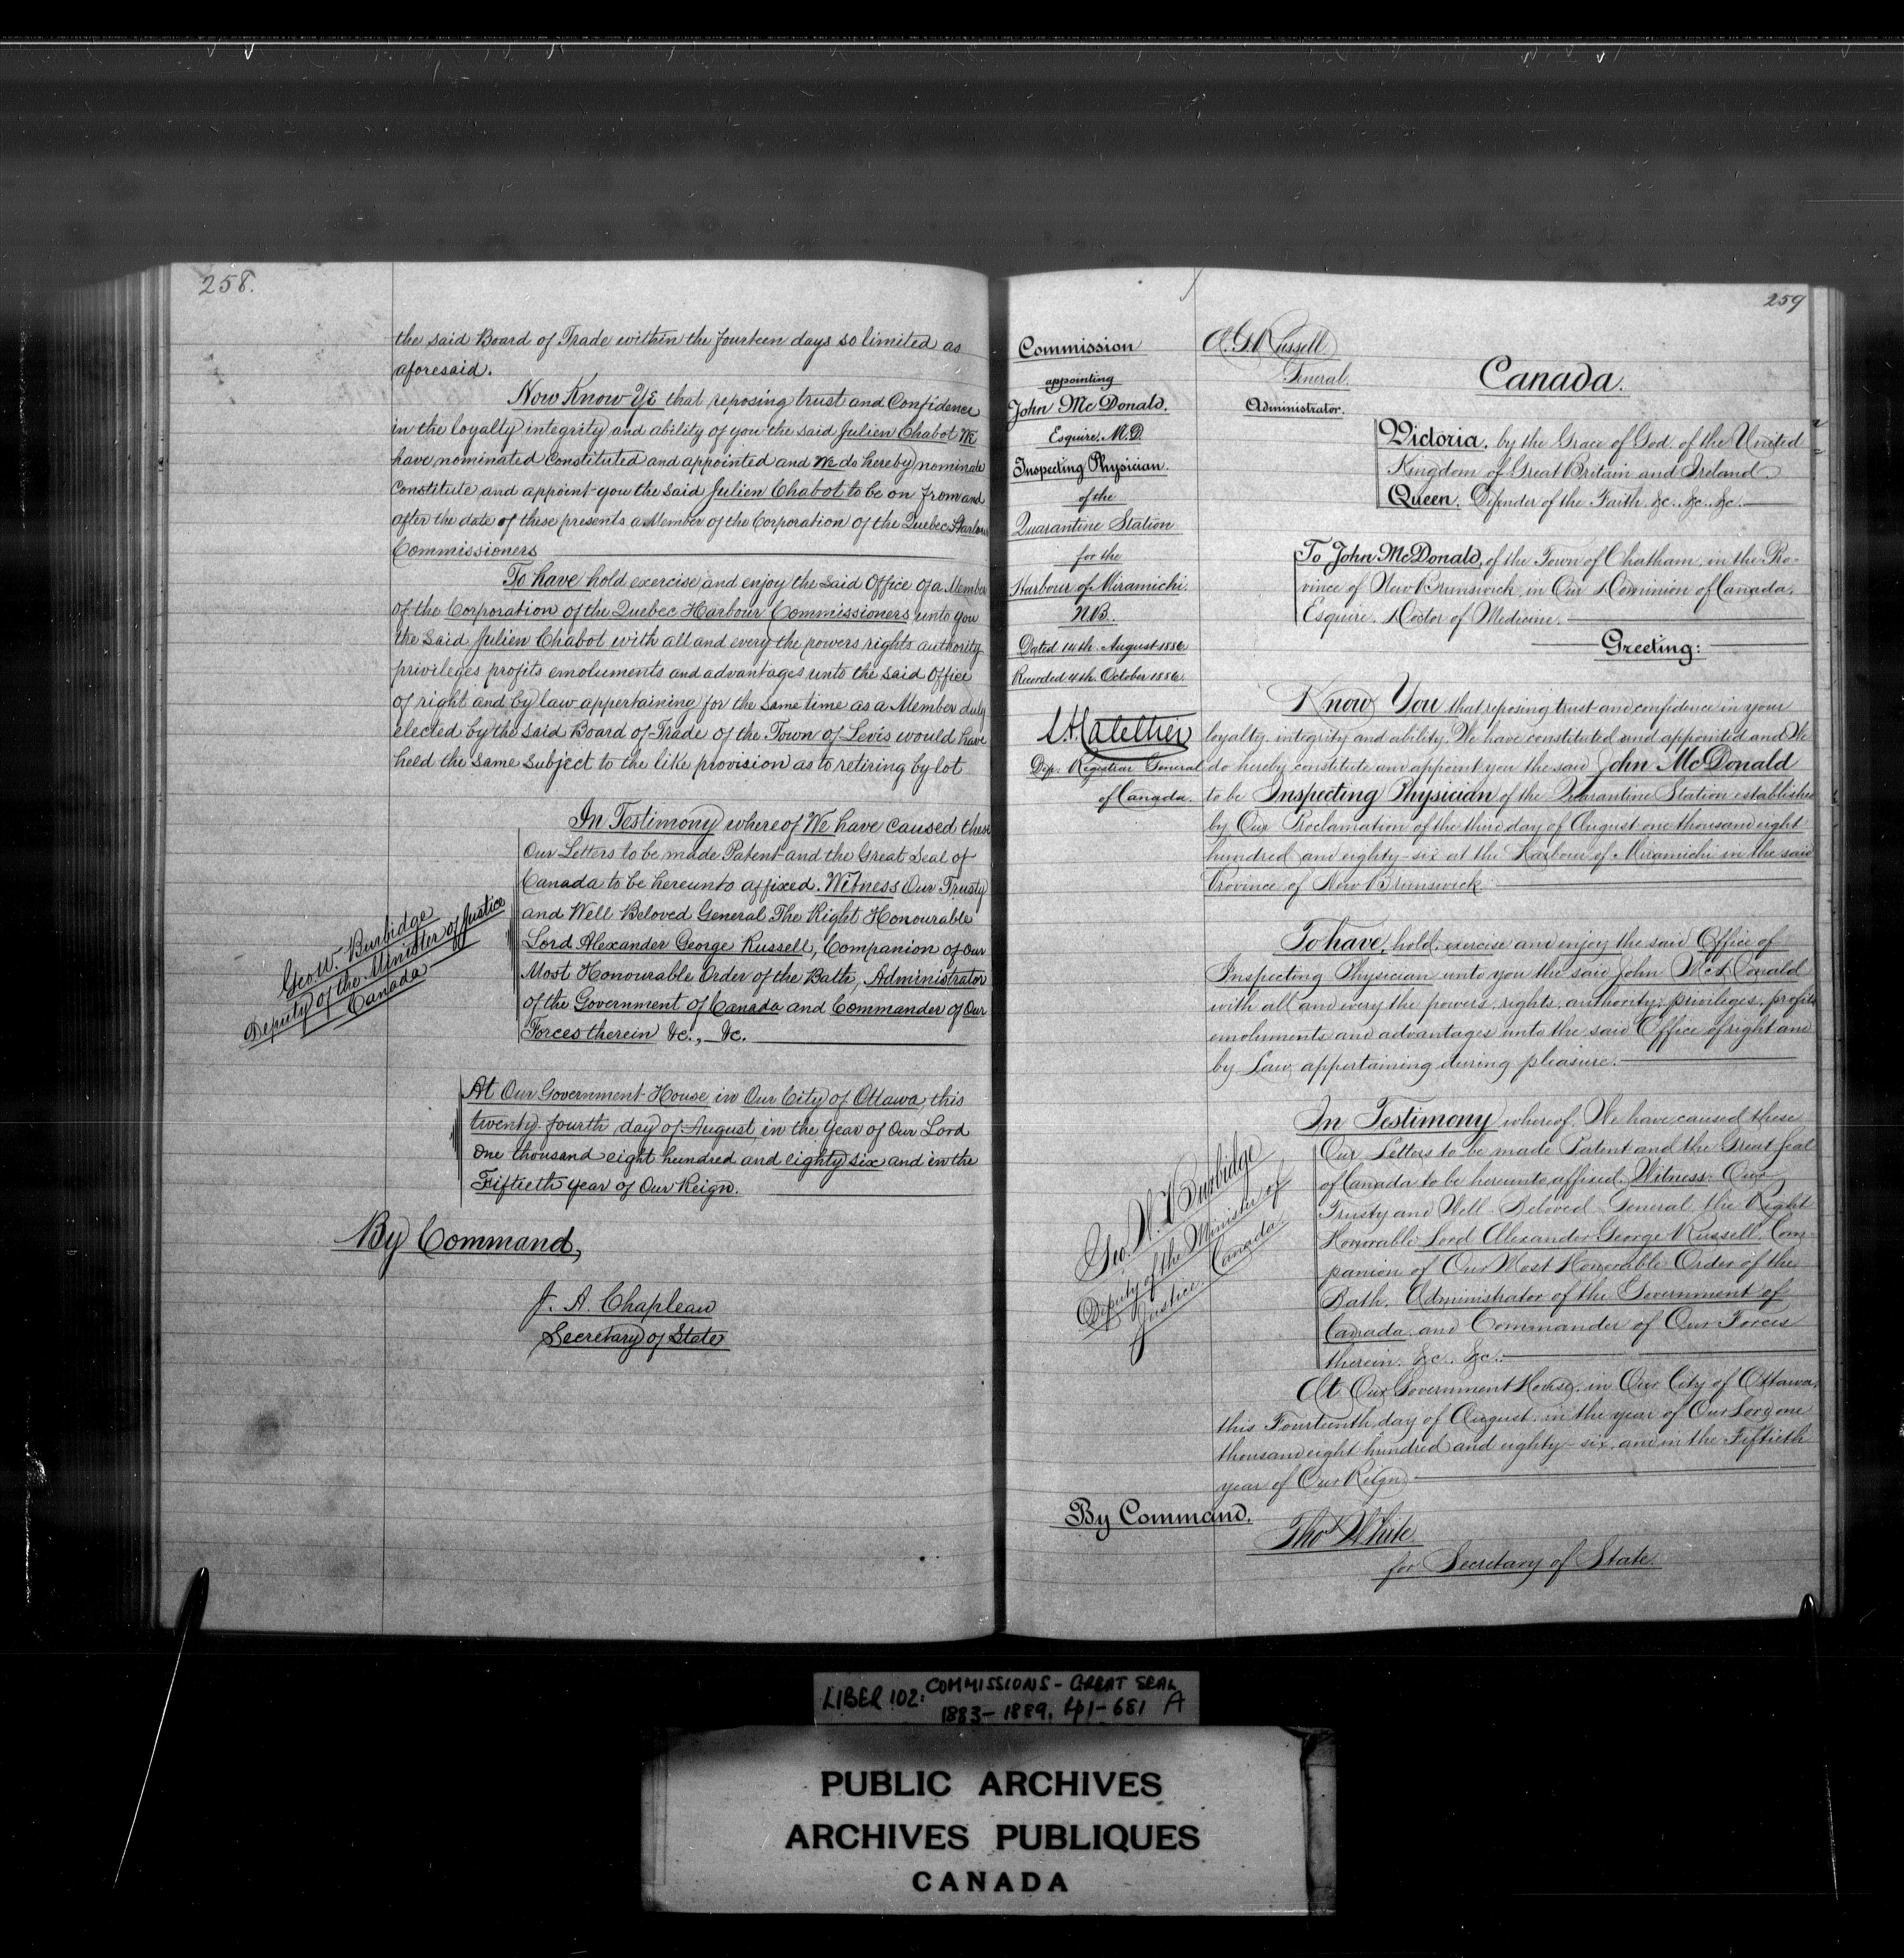 258.
the said Board of Trade within the fourteen days so limited as
aforesaid.
Now Know Ye that reposing trust and Confidence
in the loyalty integrity and ability of you the said Julien Chabot We
have nominated constituted and appointed and We do hereby nominate
constitute and appoint you the said Julien Chabot to be on from and
after the date of these presents a Member of the Corporation of the Quebec Harbour
Commissioners
To have hold exercise and enjoy the said Office of a Member
of the Corporation of the Quebec Harbour Commissioners unto you
the said Julien Chabot with all and every the powers rights authority
privileges profits emoluments and advantages unto the said Office
of right and by law appertaining for the same time as a Member duly
elected by the said Board of Trade of the Town of Levis would have
held the same subject to the like provision as to retiring by lot
In Testimony whereof We have caused these
Our Letters to be made Patent and the Great Seal of
Canada to be hereunto affixed. Witness Our Trusty
and Well Beloved General The Right Honourable
Lord Alexander George Russell, Companion of Our
Most Honourable Order of the Bath, Administrator
of the Government of Canada and Commander of Our
Forces therein &c., &c.
Geo. W. Burbidge
Deputy of the Minister of Justice
Canada
At Our Government House in Our City of Ottawa, this
twenty fourth day of August in the Year of Our Lord
one thousand eight hundred and eighty six and in the
Fiftieth year of Our Reign.
By Command,
J. A. Chapleau
Secretary of State
259
Commission
appointing
John McDonald,
Esquire, M.D.
Inspecting Physician.
of the
Quarantine Station
for the
Harbour of Miramichi.
N.B.
Dated 14th. August 1886
Recorded 4th. October 1886.
L. A. Catellier
Dep. Registrar General
of Canada.
A. G. Russell
General.
Administrator.
Canada.
Victoria, by the Grace of God, of the United
Kingdom of Great Britain and Ireland
Queen, Defender of the Faith, &c. &c. &c.
To John McDonald, of the Town of Chatham, in the Pro-
vince of New Brunswick, in Our Dominion of Canada,
Esquire, Doctor of Medicine.
Greeting:
Know You that reposing trust and confidence in your
loyalty, integrity and ability, We have constituted and appointed and We
do hereby constitute and appoint you the said John McDonald
to be Inspecting Physician of the Quarantine Station established
by Our Proclamation of the third day of August one thousand eight
hundred and eighty-six at the Harbour of Miramichi in the said
Province of New Brunswick
To have, hold, exercise and enjoy the said Office of
Inspecting Physician unto you the said John McDonald
with all and every the powers, rights, authority, privileges, profits
emoluments and advantages unto the said Office of right and
by Law appertaining during pleasure.
In Testimony whereof, We have caused these
Our Letters to be made Patent and the Great Seal
of Canada to be hereunto affixed, Witness: Our
Trusty and Well-Beloved General the Right
Honorable Lord Alexander George Russell, Com-
panion of Our Most Honorable Order of the
Bath, Administrator of the Government of
Canada, and Commander of Our Forces
therein, &c. &c.
Geo. W. Burbidge
Deputy of the Minister of
Justice. Canada
At Our Government House, in Our City of Ottawa,
this Fourteenth day of August, in the year of Our Lord one
thousand eight hundred and eighty-six, and in the Fiftieth
year of Our Reign
By Command.
Thos White
for Secretary of State.
LIBER 102: COMMISSIONS - GREAT SEAL
1883-1889, 41-681 A
PUBLIC ARCHIVES
ARCHIVES PUBLIQUES
CANADA